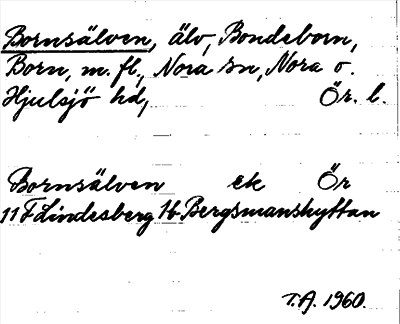 Bornsälven, älv, Bondeborn,
Born, m. fl., Nora sn, Nora o.
Hjulsjö hd, Ör. l.
Bornsälven ek Ör
11 F Lindesberg 1b Bergsmanshyttan
T.A. 1960.